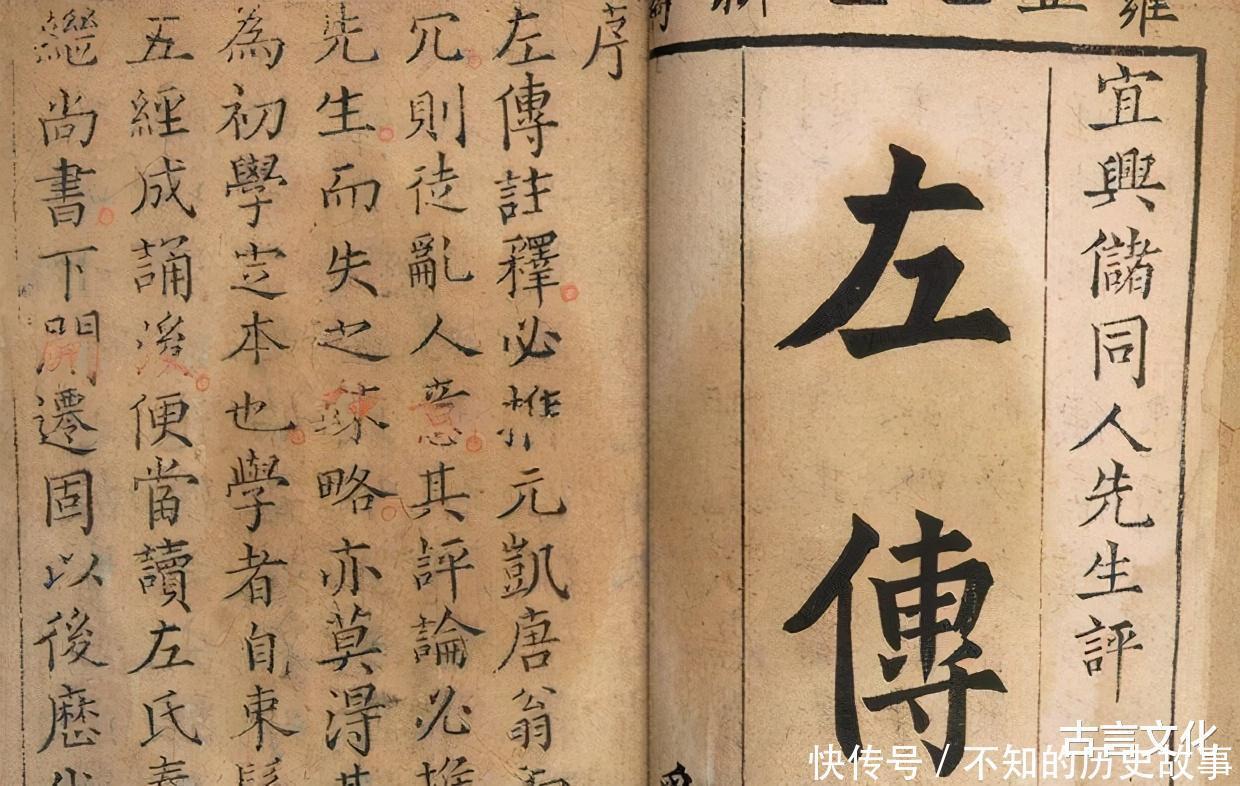 雍
宜興儲同人先生評
左傳
序
左傳註釋必推元凱唐翁
冗則徒亂人意其評論必推
先生而失之疎略亦莫得其
為初學定本也學者自束髮
五經成誦後便當讀左氏春
繼尚書下開遷固以後歷代
古言文化
快传号/不知的历史故事